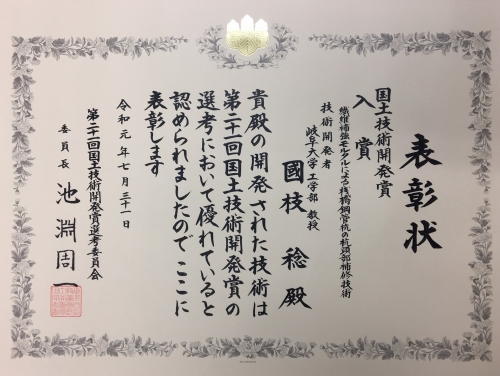 表彰状
国土技術開発賞
入賞
繊維補強モルタルによる桟橋鋼管杭の杭頭部補修技術
技術開発者
岐阜大学 工学部 教授
國枝 稔 殿
貴殿の開発された技術は
第二十一回国土技術開発賞の
選考において優れていると
認められましたので ここに
表彰します
令和元年七月三十一日
第二十一回国土技術開発賞選考委員会
委員長 池淵周一